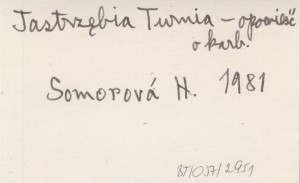 Jastrzębia Turnia - opowieść
o karb.
Somorová H. 1981
BT/057/2951